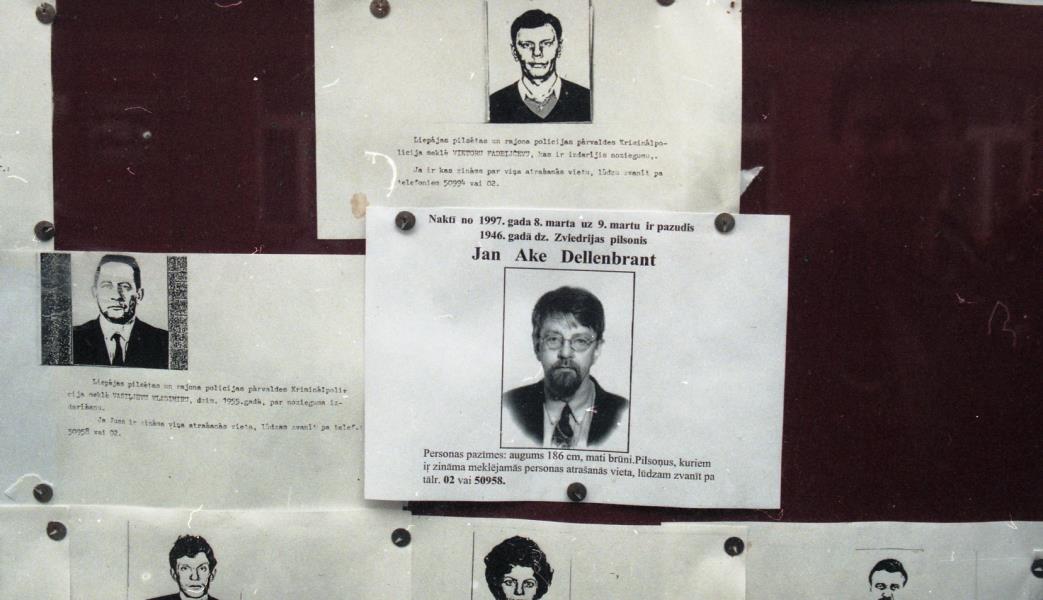 Liepājas pilsētas un rajona policijas pārvaldes Kriminālpo-
licija meklē VIKTORU FADEIČEVU, kas ir izdarījis noziegumu,.
Ja ir kas zināms par viņa atrašanās vietu, lūdzu zvanīt pa
telefoniem 50994 vai 02.
Naktī no 1997. gada 8. marta uz 9. martu ir pazudis
1946. gadā dz. Zviedrijas pilsonis
Jan Ake Dellenbrant
Personas pazīmes: augums 186 cm, mati brūni.Pilsoņus, kuriem
ir zināma meklējamās personas atrašanās vieta, lūdzam zvanīt pa
tālr. 02 vai 50958.
Liepājas pilsētas un rajona policijas pārvaldes Kriminālpolir
cija meklē VASIĻJEVU VLADIMIRU, dzim. 1955.gadā, par nozieguma iz-
darīšanu.
Ja Jums ir zināma viņa atrašanās vieta, lūdzam zvanīt pa telef.:
50958 vai 02.